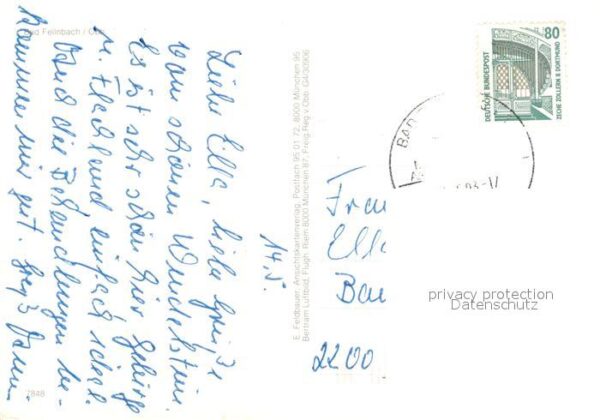 Bad Feilnbach / Obb.
14.5.
Liebe Elke, liebe Grüße
vom schönen Wendelstein.
Es ist sehr schön hier Gebirge
u. Flachland einfach ideal.
Und die Behandlungen be-
kommen mir gut.
E. Feldbauer, Ansichtskartenverlag, Postfach 95 01 72, 8000 München 95
Bertram Luftbild, Flugh. Riem 8000 München 87, Freig. Reg. v. Obb. G4/30906
7848
80
DEUTSCHE BUNDESPOST
ZECHE ZOLLERN II DORTMUND
BAD
Frau
Elk
Bau
2200
privacy protection
Datenschutz